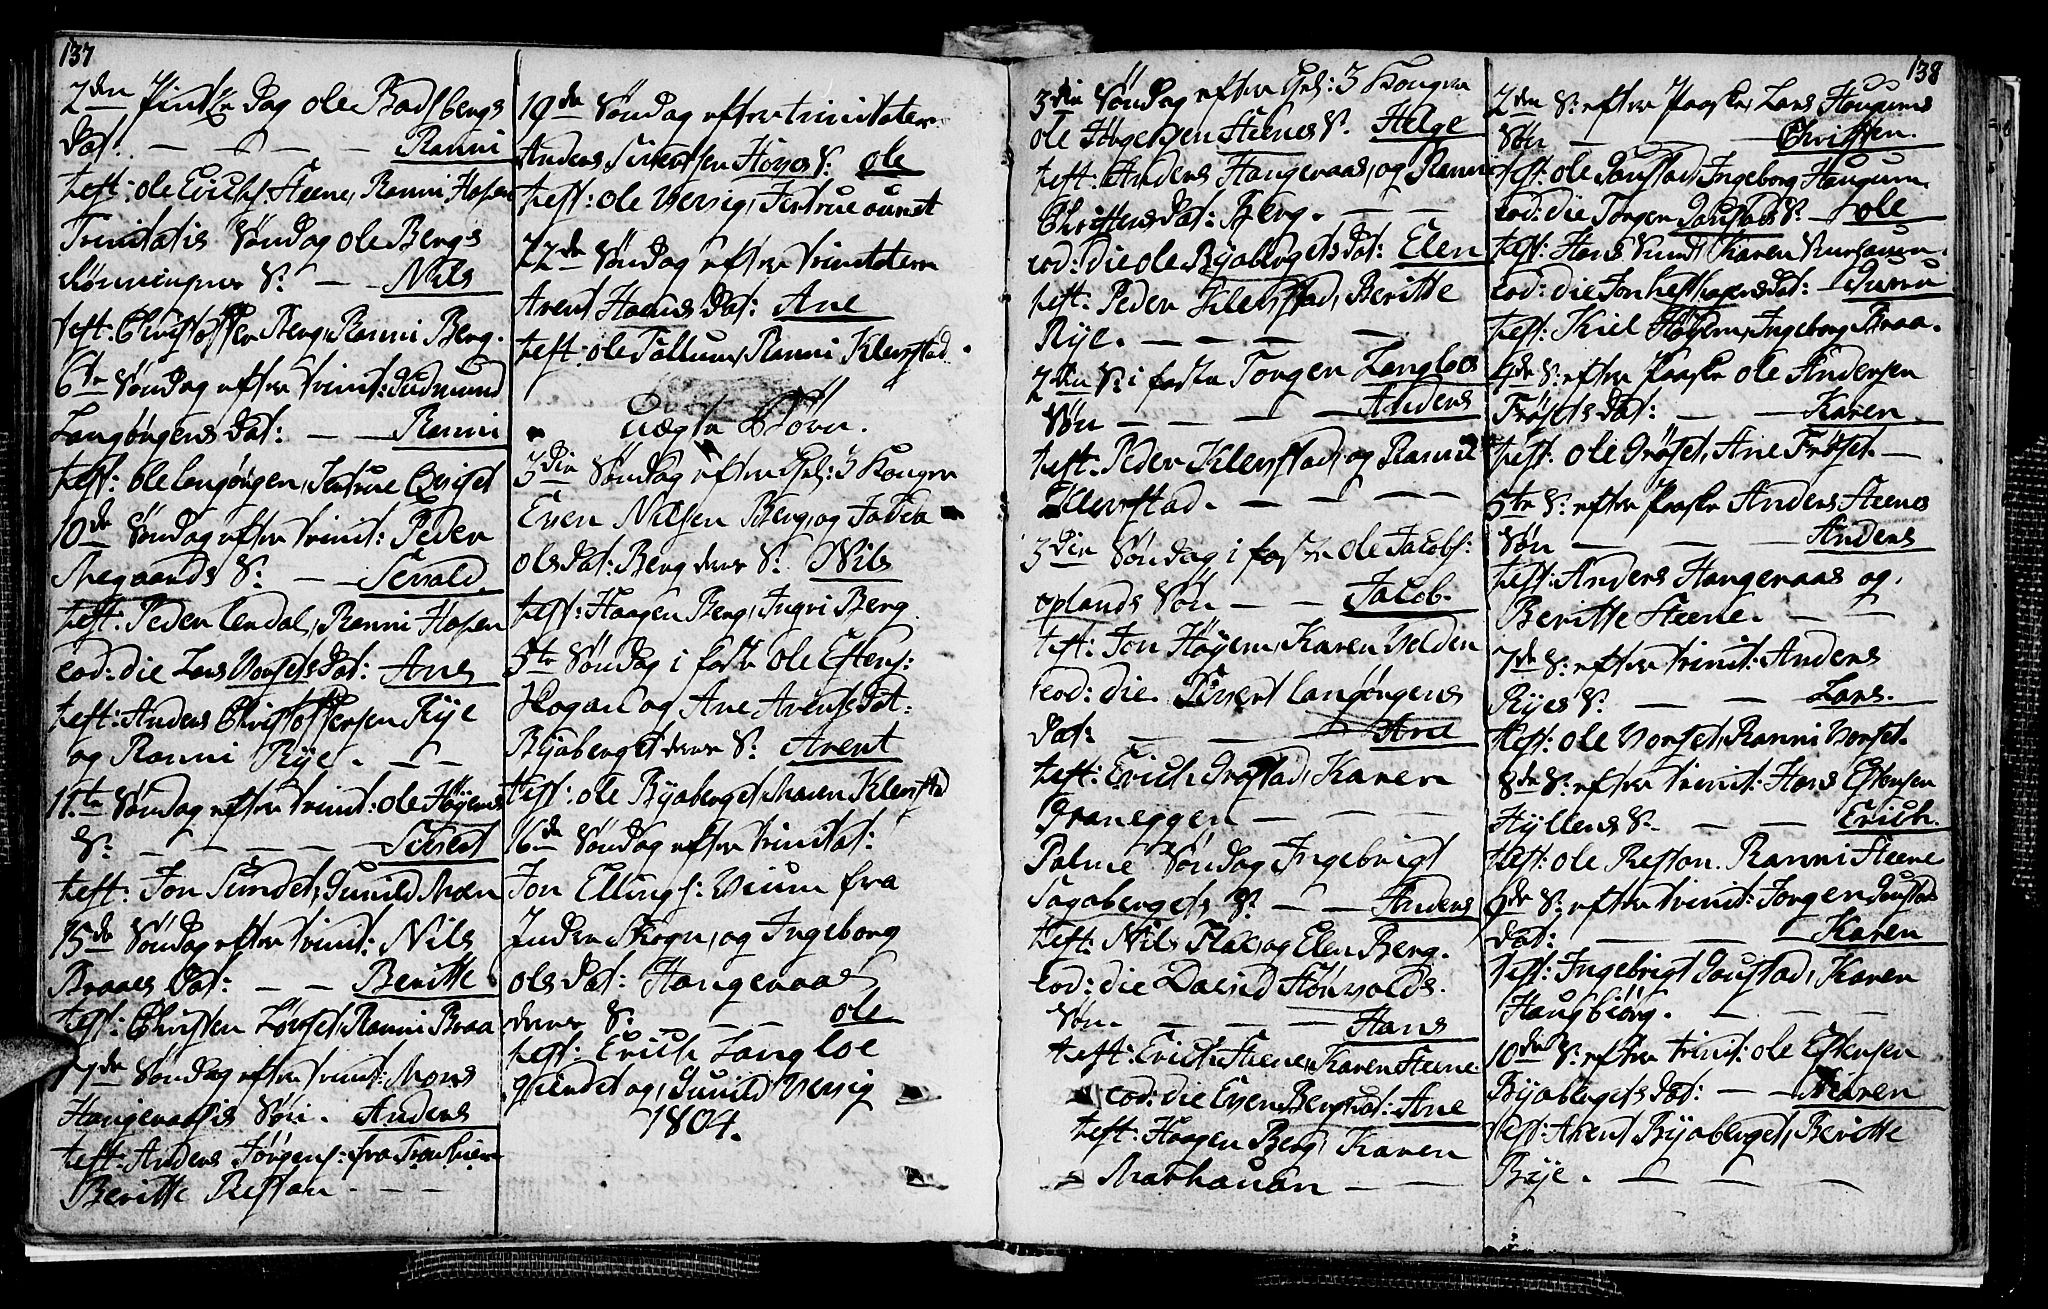 137
2den Pintse Dag ole Badsbergs
Dat. — — — — Ranni
test: ole Erichs: Steene, Ranni Hosen
Trinitatis Søndag ole Bergs
Rønningner S: — — Nils
test: Christoffer Berg, Ranni Berg.
6te Søndag efter trinit: Gudmund
Langørgens Dat: — — Ranni
test: ole langørgen, Jertrue Qvset
10de Søndag efter trinit: Peder
Megaards S: — — Sevald
test: Peder lendal, Ranni Hosen
eod: die Lars Vorsets Dat: Ane
test: Anders Christoffersen Rye
og Ranni Rye. — —
11te Søndag efter trinit: ole Høyems
S: — — — — Sivert
test: Jon Sundet, Gunild Moen
15de Søndag efter trinit: Nils
Braaes Dat: — — Beritte
test: Christen Lørset, Ranni Braa
17de Søndag efter trinit: Mons
Hangeraasis Søn. Anders
test: Anders Jørgens: fra Tronhiem
Beritte Reston. — —
19de Søndag efter trinitatem
Anders Sivertsen Høyos S: ole
test: ole Versig, Jertrue ounet
22de Søndag efter trinitatem
Arent Hoems Dat: Ane
test: ole Tollum, Ranni Klerstad.
Uægte Børn.
3die Søndag efter Hel: 3 Konger
Even Nilsen Berg, og
olsdat: Berg deres S: Nils
test: Haagen Berg, Ingri Berg
5te Søndag i faste ole Estens:
Hogan og Ane Arentsdat:
Byaberget deres S: Arent
test: ole Byaberget, Maren Klerstad
16de Søndag efter trinitat:
Jon Ellings: Vium fra
Inder Skogn, og Ingeborg
olsdat: Hangeraas
deres S: — — ole
test: Erich Langloe
qviendet og, Gunild Versig
1804.
138
3die Søndag efter Hel: 3 Konger
ole Steenes S. Helge
test: Anders Hangeraas, og Ranni
Christensdat: Berg. — —
eod: die ole Byabergets Dat: Elen
test: Peder Klerstad, Beritte
Rye. — — — —
2den S: i faste Torger Langloes
Søn — — — — Anders
test: Peder Klerstad, og Ranni
Klerstad. — — — —
3die Søndag i faste ole Jacobs:
oplands Søn — — Jacob.
test: Jon Høyem, Karen Velden
eod: die. Sivert langørgens
Dat: — — — Ane
test: Erich Drøstad, Karen
Graneggen — — —
Palme Søndag Ingebrigt
Togabergets S: — — Anders
test: Nils Flak, og Elen Berg.
eod: die David Stønvolds.
Søn. — — — Hans
test: Erich Steene, Karen Steene
eod: die Even Bergs dat: Ane
test: Haagen Berg, Karen
Markauen — —
2den S: efter Paaske, Lars Hougums
Søn — — — Christen.
test: ole Gaustad, Ingeborg Haugum.
eod: die Torger Gaustads S. — ole
test: Hans Sund, Karen
eod: die Jon dat: Guru
test: Kiel Høyem, Ingeborg Braa.
4de S: efter Paaske ole Andersen
Frøsets Dat: — — Karen
test: ole Drøset, Ane Frøset. —
5te S: efter Paaske Anders Steenes
Søn — — — Anders
test: Anders Hangeraas og,
Beritte Steene. — —
7de S: efter trinit: Anders
Ryes S: — — — Lars.
test: ole Vorset, Ranni Vorset.
8de S: efter trinit: Hans Estensen
Hyllens S. — — Erich.
test: ole Reston. Ranni Steene
9de S: efter trinit: Jørgen Gaustads
Dat: — — — Karen
test: Ingebrigt Gaustad, Karen
Haugbiörg. — — —
10de S: efter trinit: ole Estensen
Byabergets Dat: — — Maren
test: Arent Byaberget, Beritte
Rye. — — —